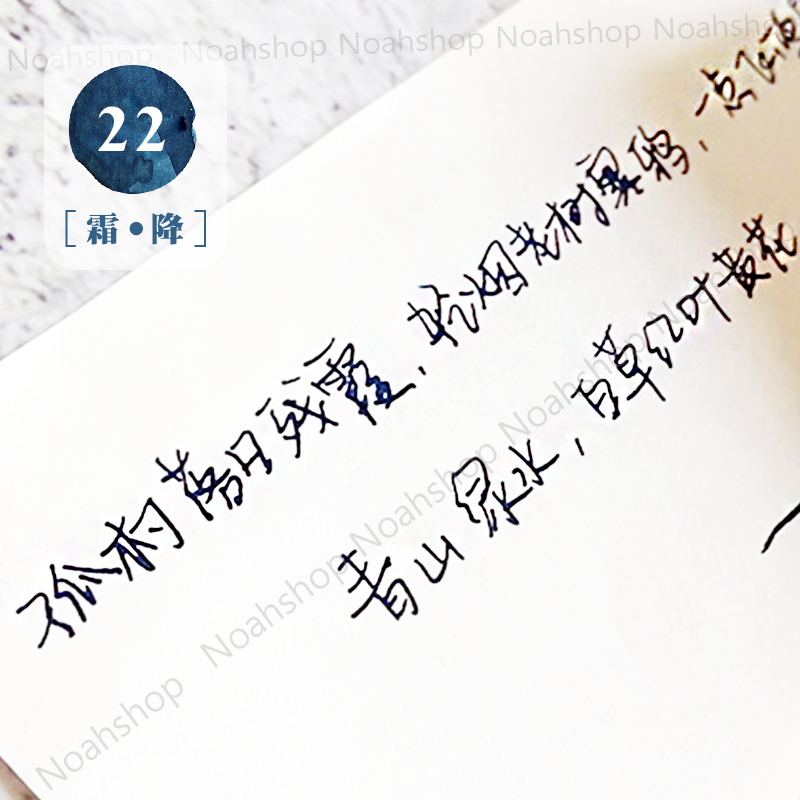 Noahshop Noahshop Noahshop Noahshop Noahshop
22
[霜•降]
孤村落日残霞,轻烟老树寒鸦,一点飞
青山绿水,白草红叶黄花
Noahshop Noahshop Noahshop Noahshop Noahshop